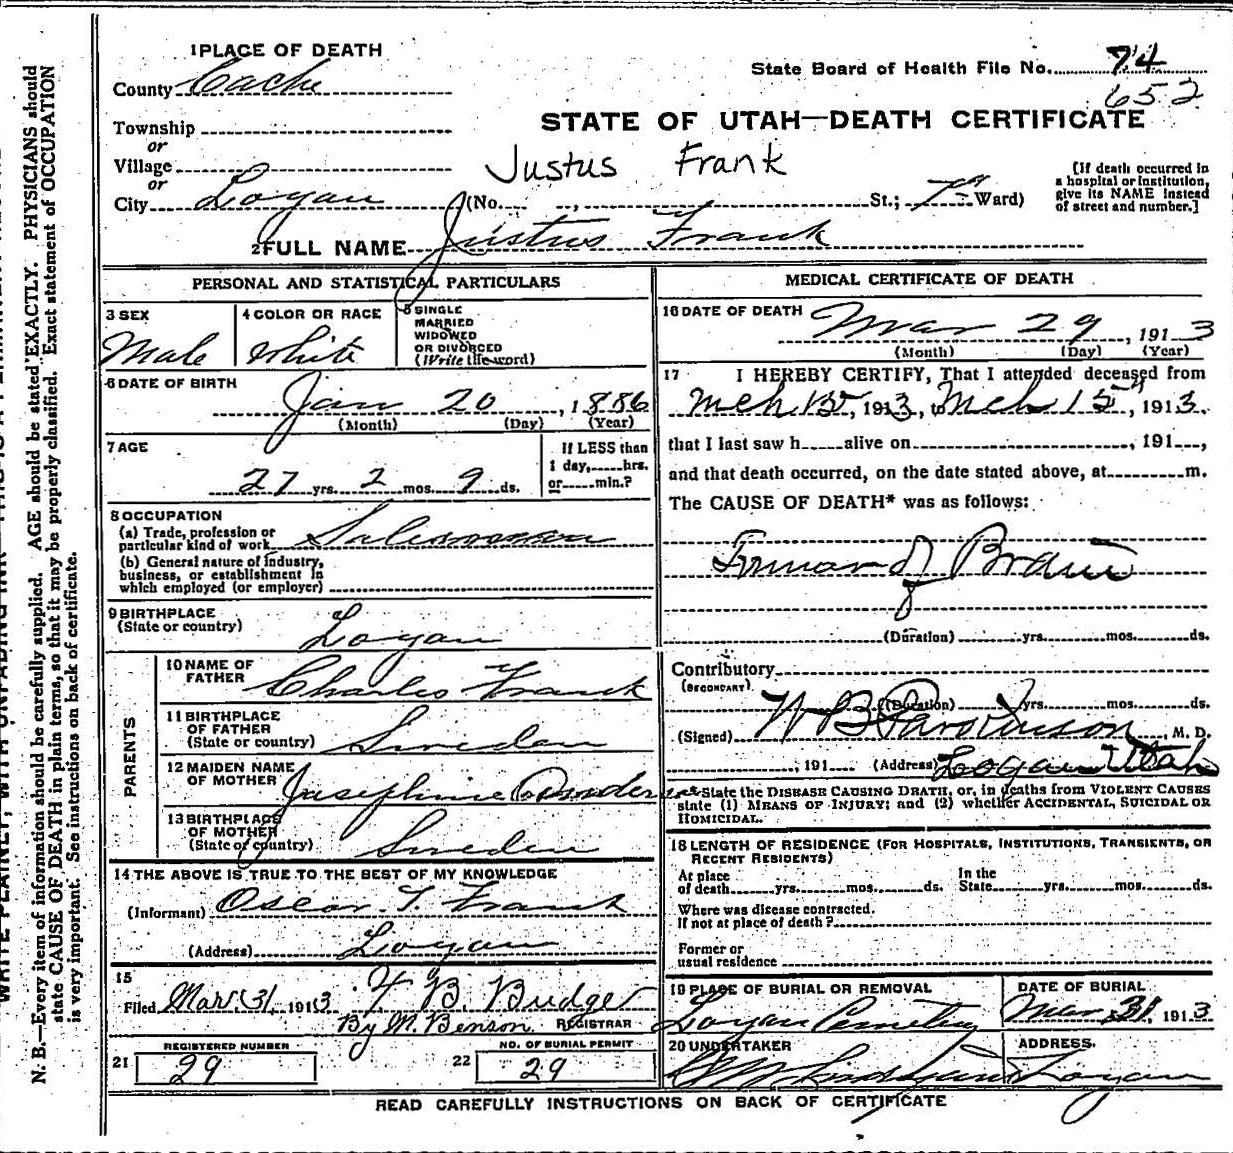 1 PLACE OF DEATH
County Cache
State Board of Health File No. 74
652
Township
or
Village
or
City Logan
STATE OF UTAH—DEATH CERTIFICATE
Justus Frank
(No. , St.; 7th Ward)
[If death occurred in
a hospital or institution,
give its NAME instead
of street and number.]
2 FULL NAME Justus Frank
PERSONAL AND STATISTICAL PARTICULARS
3 SEX
Male
4 COLOR OR RACE
White
5 SINGLE
MARRIED
WIDOWED
OR DIVORCED
(Write the word)
6 DATE OF BIRTH
Jan 20, 1886
(Month) (Day) (Year)
7 AGE
27 yrs. 2 mos. 9 ds.
If LESS than
1 day, hrs.
or min.?
8 OCCUPATION
(a) Trade, profession or
particular kind of work Salesman
(b) General nature of industry,
business, or establishment in
which employed (or employer)
9 BIRTHPLACE
(State or country) Logan
PARENTS
10 NAME OF
FATHER Charles Frank
11 BIRTHPLACE
OF FATHER
(State or country) Sweden
12 MAIDEN NAME
OF MOTHER Josephine
13 BIRTHPLACE
OF MOTHER
(State or country) Sweden
14 THE ABOVE IS TRUE TO THE BEST OF MY KNOWLEDGE
(Informant) Oscar T. Frank
(Address) Logan
15
Filed Mar. 31, 1913 B. Budge
By M. Benson REGISTRAR
REGISTERED NUMBER
21 29
NO. OF BURIAL PERMIT
22 29
MEDICAL CERTIFICATE OF DEATH
16 DATE OF DEATH Mar 29, 1913
(Month) (Day) (Year)
17 I HEREBY CERTIFY, That I attended deceased from
Mch 15, 1913, to Mch 15", 1913,
that I last saw h alive on , 191 ,
and that death occurred, on the date stated above, at m.
The CAUSE OF DEATH* was as follows:
of Brain
(Duration) yrs. mos. ds.
Contributory
(SECONDARY)
(Duration) yrs. mos. ds.
(Signed) W B Parkinson, M. D.
, 191 (Address) Logan Utah
State the DISEASE CAUSING DEATH, or, in deaths from VIOLENT CAUSES
state (1) MEANS OF INJURY; and (2) whether ACCIDENTAL, SUICIDAL OR
HOMICIDAL.
18 LENGTH OF RESIDENCE (FOR HOSPITALS, INSTITUTIONS, TRANSIENTS, OR
RECENT RESIDENTS)
At place
of death yrs. mos. ds. In the
State yrs. mos. ds.
Where was disease contracted.
If not at place of death?
Former or
usual residence
19 PLACE OF BURIAL OR REMOVAL
Logan Cemetery
DATE OF BURIAL
Mar 31, 1913
20 UNDERTAKER
ADDRESS.
Logan
READ CAREFULLY INSTRUCTIONS ON BACK OF CERTIFICATE
N. B.—Every item of information should be carefully supplied. AGE should be stated EXACTLY. PHYSICIANS should
state CAUSE OF DEATH in plain terms, so that it may be properly classified. Exact statement of OCCUPATION
is very important. See instructions on back of certificate.